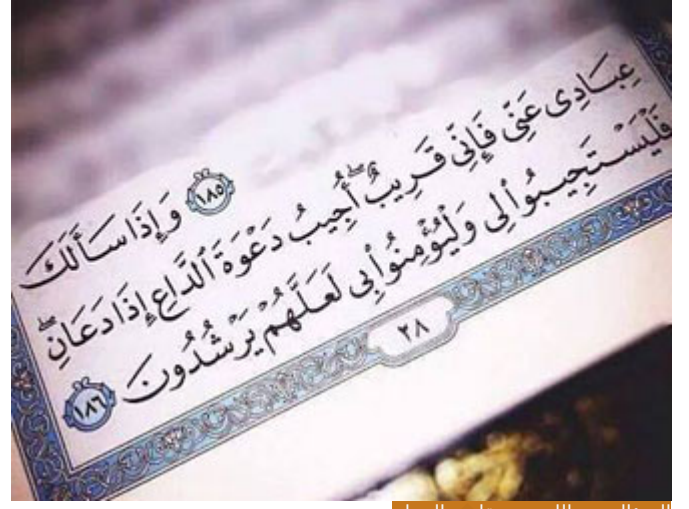 ﴿١٨٥﴾ وَإِذَا سَأَلَكَ
عِبَادِى عَنِّى فَإِنِّى قَرِيبٌ ۖ أُجِيبُ دَعْوَةَ ٱلدَّاعِ إِذَا دَعَانِ ۖ
فَلْيَسْتَجِيبُوا۟ لِى وَلْيُؤْمِنُوا۟ بِى لَعَلَّهُمْ يَرْشُدُونَ ﴿١٨٦﴾
٢٨